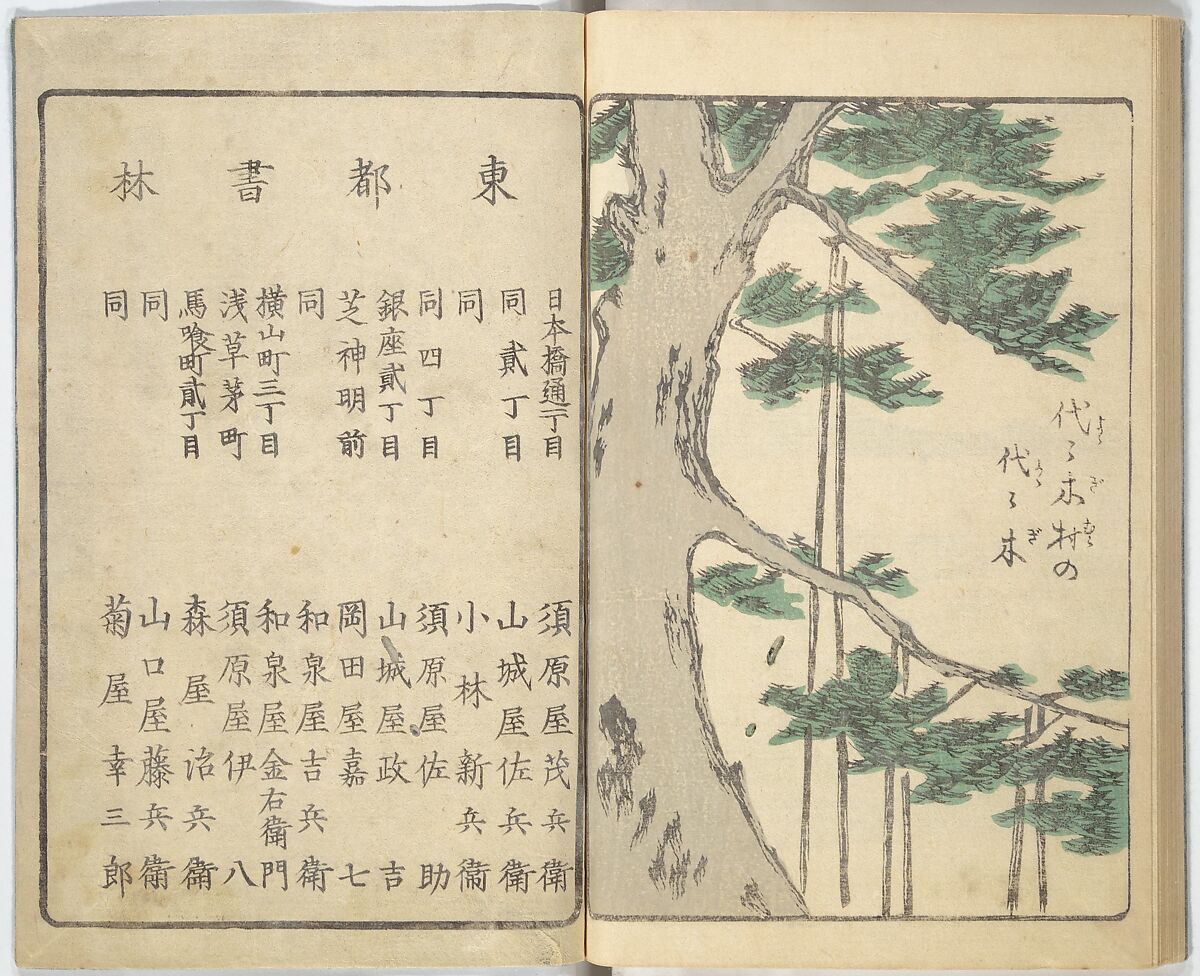 代々木村の
代々木
東都書林
日本橋通一丁目 須原屋茂兵衛
同 貳丁目 山城屋佐兵衛
同 小林新兵衛
同 四丁目 須原屋佐助
銀座貳丁目 山城屋政吉
芝神明前 岡田屋嘉七
同 和泉屋吉兵衛
横山町三丁目 和泉屋金右衛門
浅草茅町 須原屋伊八
馬喰町貳丁目 森屋治兵衛
同 山口屋藤兵衛
同 菊屋幸三郎